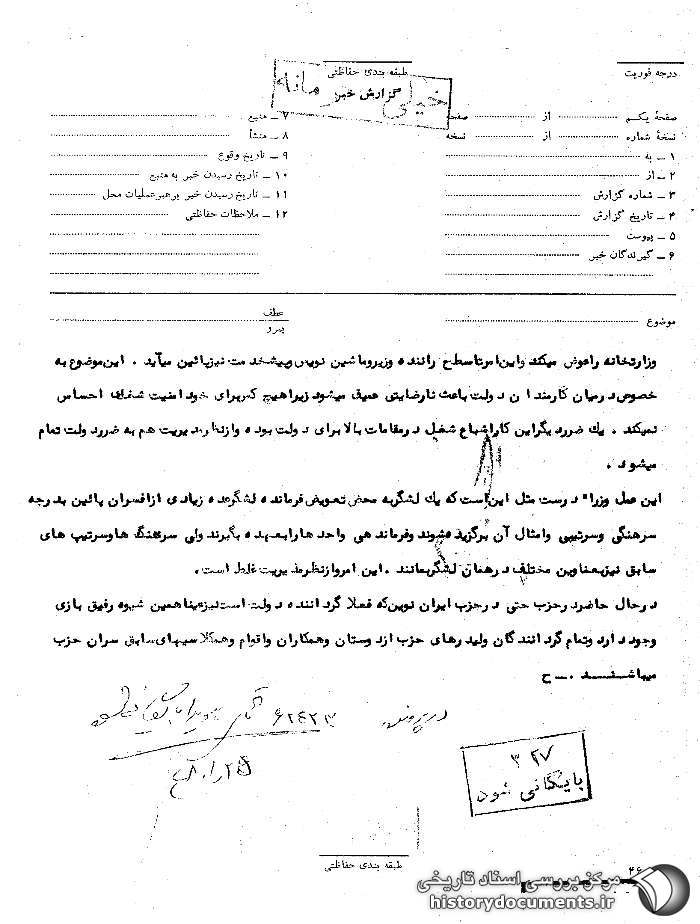 درجه فوریت
طبقه بندی حفاظتی
گزارش خبر
خیلی محرمانه
صفحهٔ یکم از صفحه
نسخهٔ شماره از نسخه
۱ ـ به
۲ ـ از
۳ ـ شماره گزارش
۴ ـ تاریخ گزارش
۵ ـ پیوست
۶ ـ گیرندگان خبر
۷ ـ منبع
۸ ـ منشأ
۹ ـ تاریخ وقوع
۱۰ ـ تاریخ رسیدن خبر به منبع
۱۱ ـ تاریخ رسیدن خبر برهبر عملیات محل
۱۲ ـ ملاحظات حفاظتی
موضوع
عطف
پیرو
وزارتخانه راعوض میکند واین امرتاسطح راننده وزیروماشین نویس وپیشخدمت نیزپائین میآید . این موضوع به
خصوص درمیان کارمندان دولت باعث نارضایتی عمیق میشود زیراهیچ کس برای خود امنیت شغلی احساس
نمیکند . یک ضرر دیگراین کاراشباع شغل درمقامات بالا برای دولت بوده وازنظر مدیریت هم به ضرر دولت تمام
میشود .
این عمل وزراء درست مثل این است که یک لشگربه محض تعویض فرمانده لشگرعده زیادی ازافسران پائین بدرجه
سرهنگی وسرتیپی وامثال آن برگزیده شوند وفرماندهی واحدهارابعهده بگیرند ولی سرهنگ هاوسرتیپ های
سابق نیزبعناوین مختلف درهمان لشگربمانند . این امرازنظرمدیریت غلط است .
درحال حاضردرحزب حتی درحزب ایران نوین که فعلا گرداننده دولت است نیزعیناهمین شیوه رفیق بازی
وجود دارد وتمام گردانندگان ولیدرهای حزب ازدوستان وهمکاران واقوام وهمکلاسیهای سابق سران حزب
میباشند . ـ ح
در پرونده ۶۲۴۲۳
۳ ۲۷
بایگانی شود
طبقه بندی حفاظتی
۴۶
مرکز بررسی اسناد تاریخی
historydocuments.ir